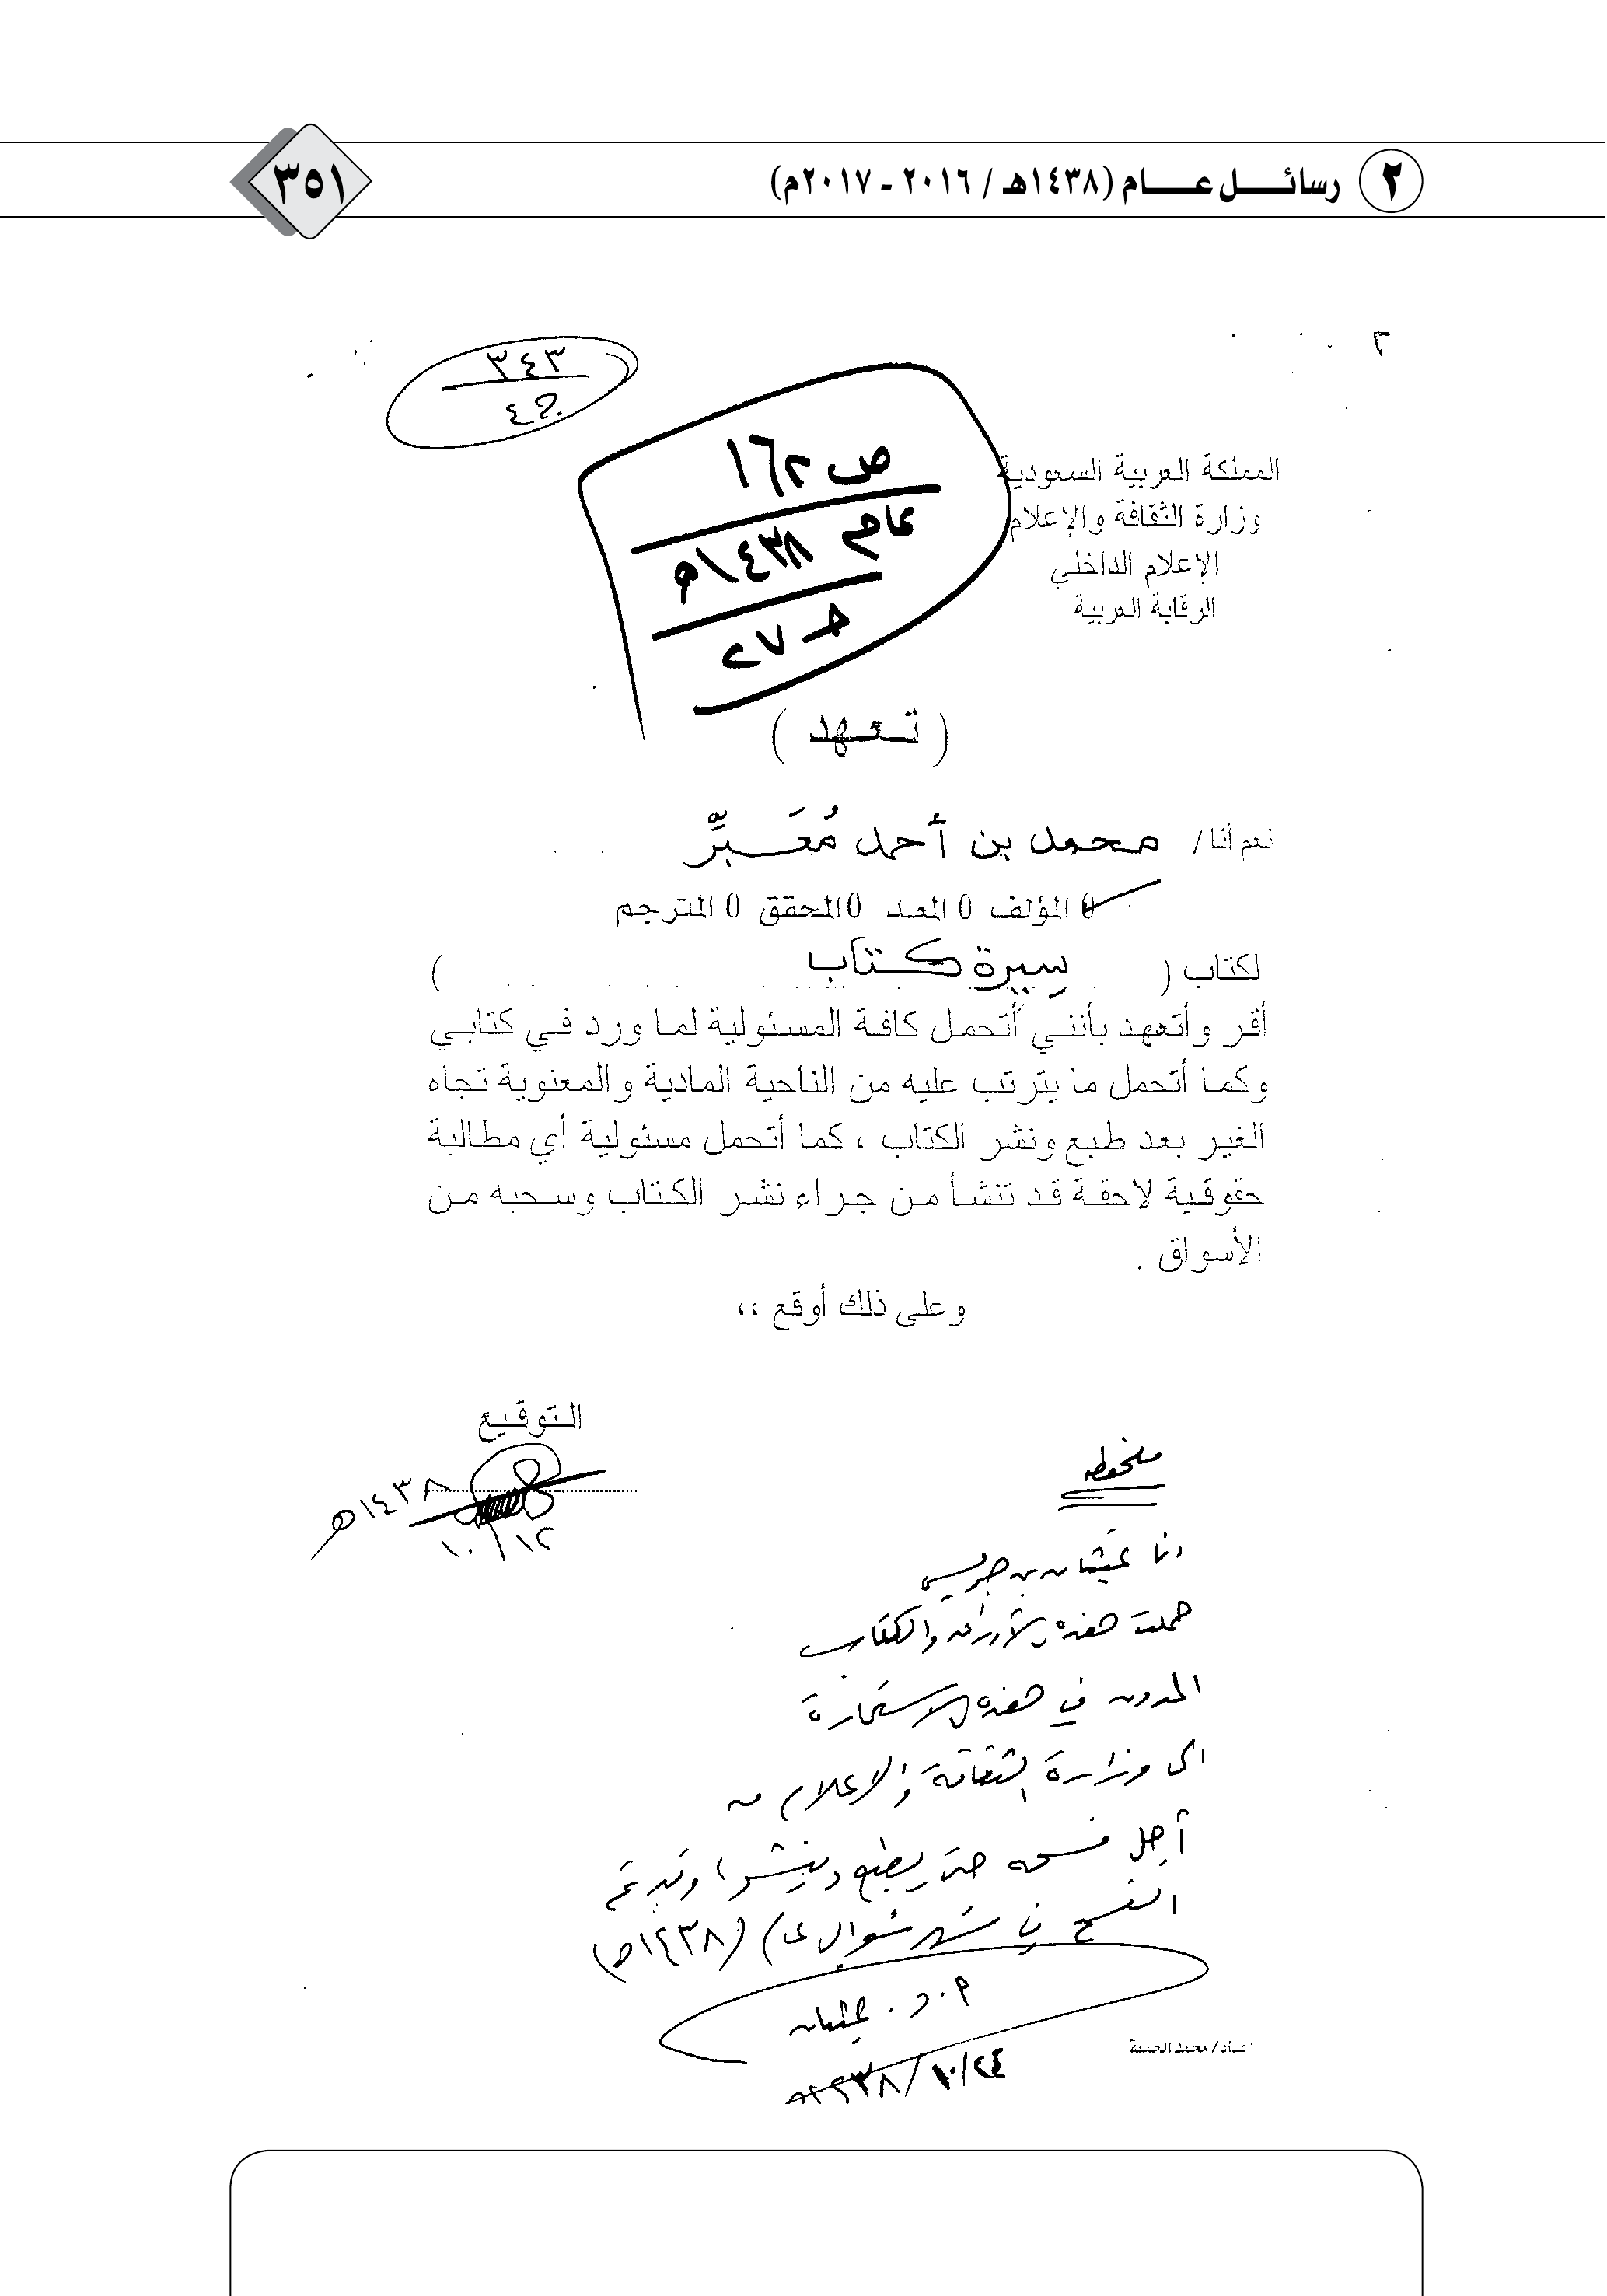 ٢ رسائل عام (١٤٣٨هـ / ٢٠١٦ - ٢٠١٧م)
٣٥١
٣٤٣
ص ١٦٢
عام ١٤٣٨هـ
حـ ٢٧
المملكة العربية السعودية
وزارة الثقافة والإعلام
الإعلام الداخلي
الرقابة العربية
( تعهد )
نعم أنا / محمد بن أحمد مُعَبِّر
0 المؤلف 0 المعد 0 المحقق 0 المترجم
لكتاب ( سيرة كتاب )
أقر وأتعهد بأنني أتحمل كافة المسئولية لما ورد في كتابي
وكما أتحمل ما يترتب عليه من الناحية المادية والمعنوية تجاه
الغير بعد طبع ونشر الكتاب ، كما أتحمل مسئولية أي مطالبة
حقوقية لاحقة قد تنشأ من جراء نشر الكتاب وسحبه من
الأسواق .
وعلى ذلك أوقع ،،
التوقيع
١٤٣٨هـ
١٠/١٢
ملحوظه
أنا عيثان بن جريس
حملت هذه الأوراق والكتاب
المدون في هذه الاستمارة
الى وزارة الثقافة والاعلام من
أجل فسحه حتى يطبع وينشر ، وقد تم
الفسح في شهر شوال عام (١٤٣٨هـ)
أ . د . غيثان
١٤٣٨/١٠/٢٤هـ